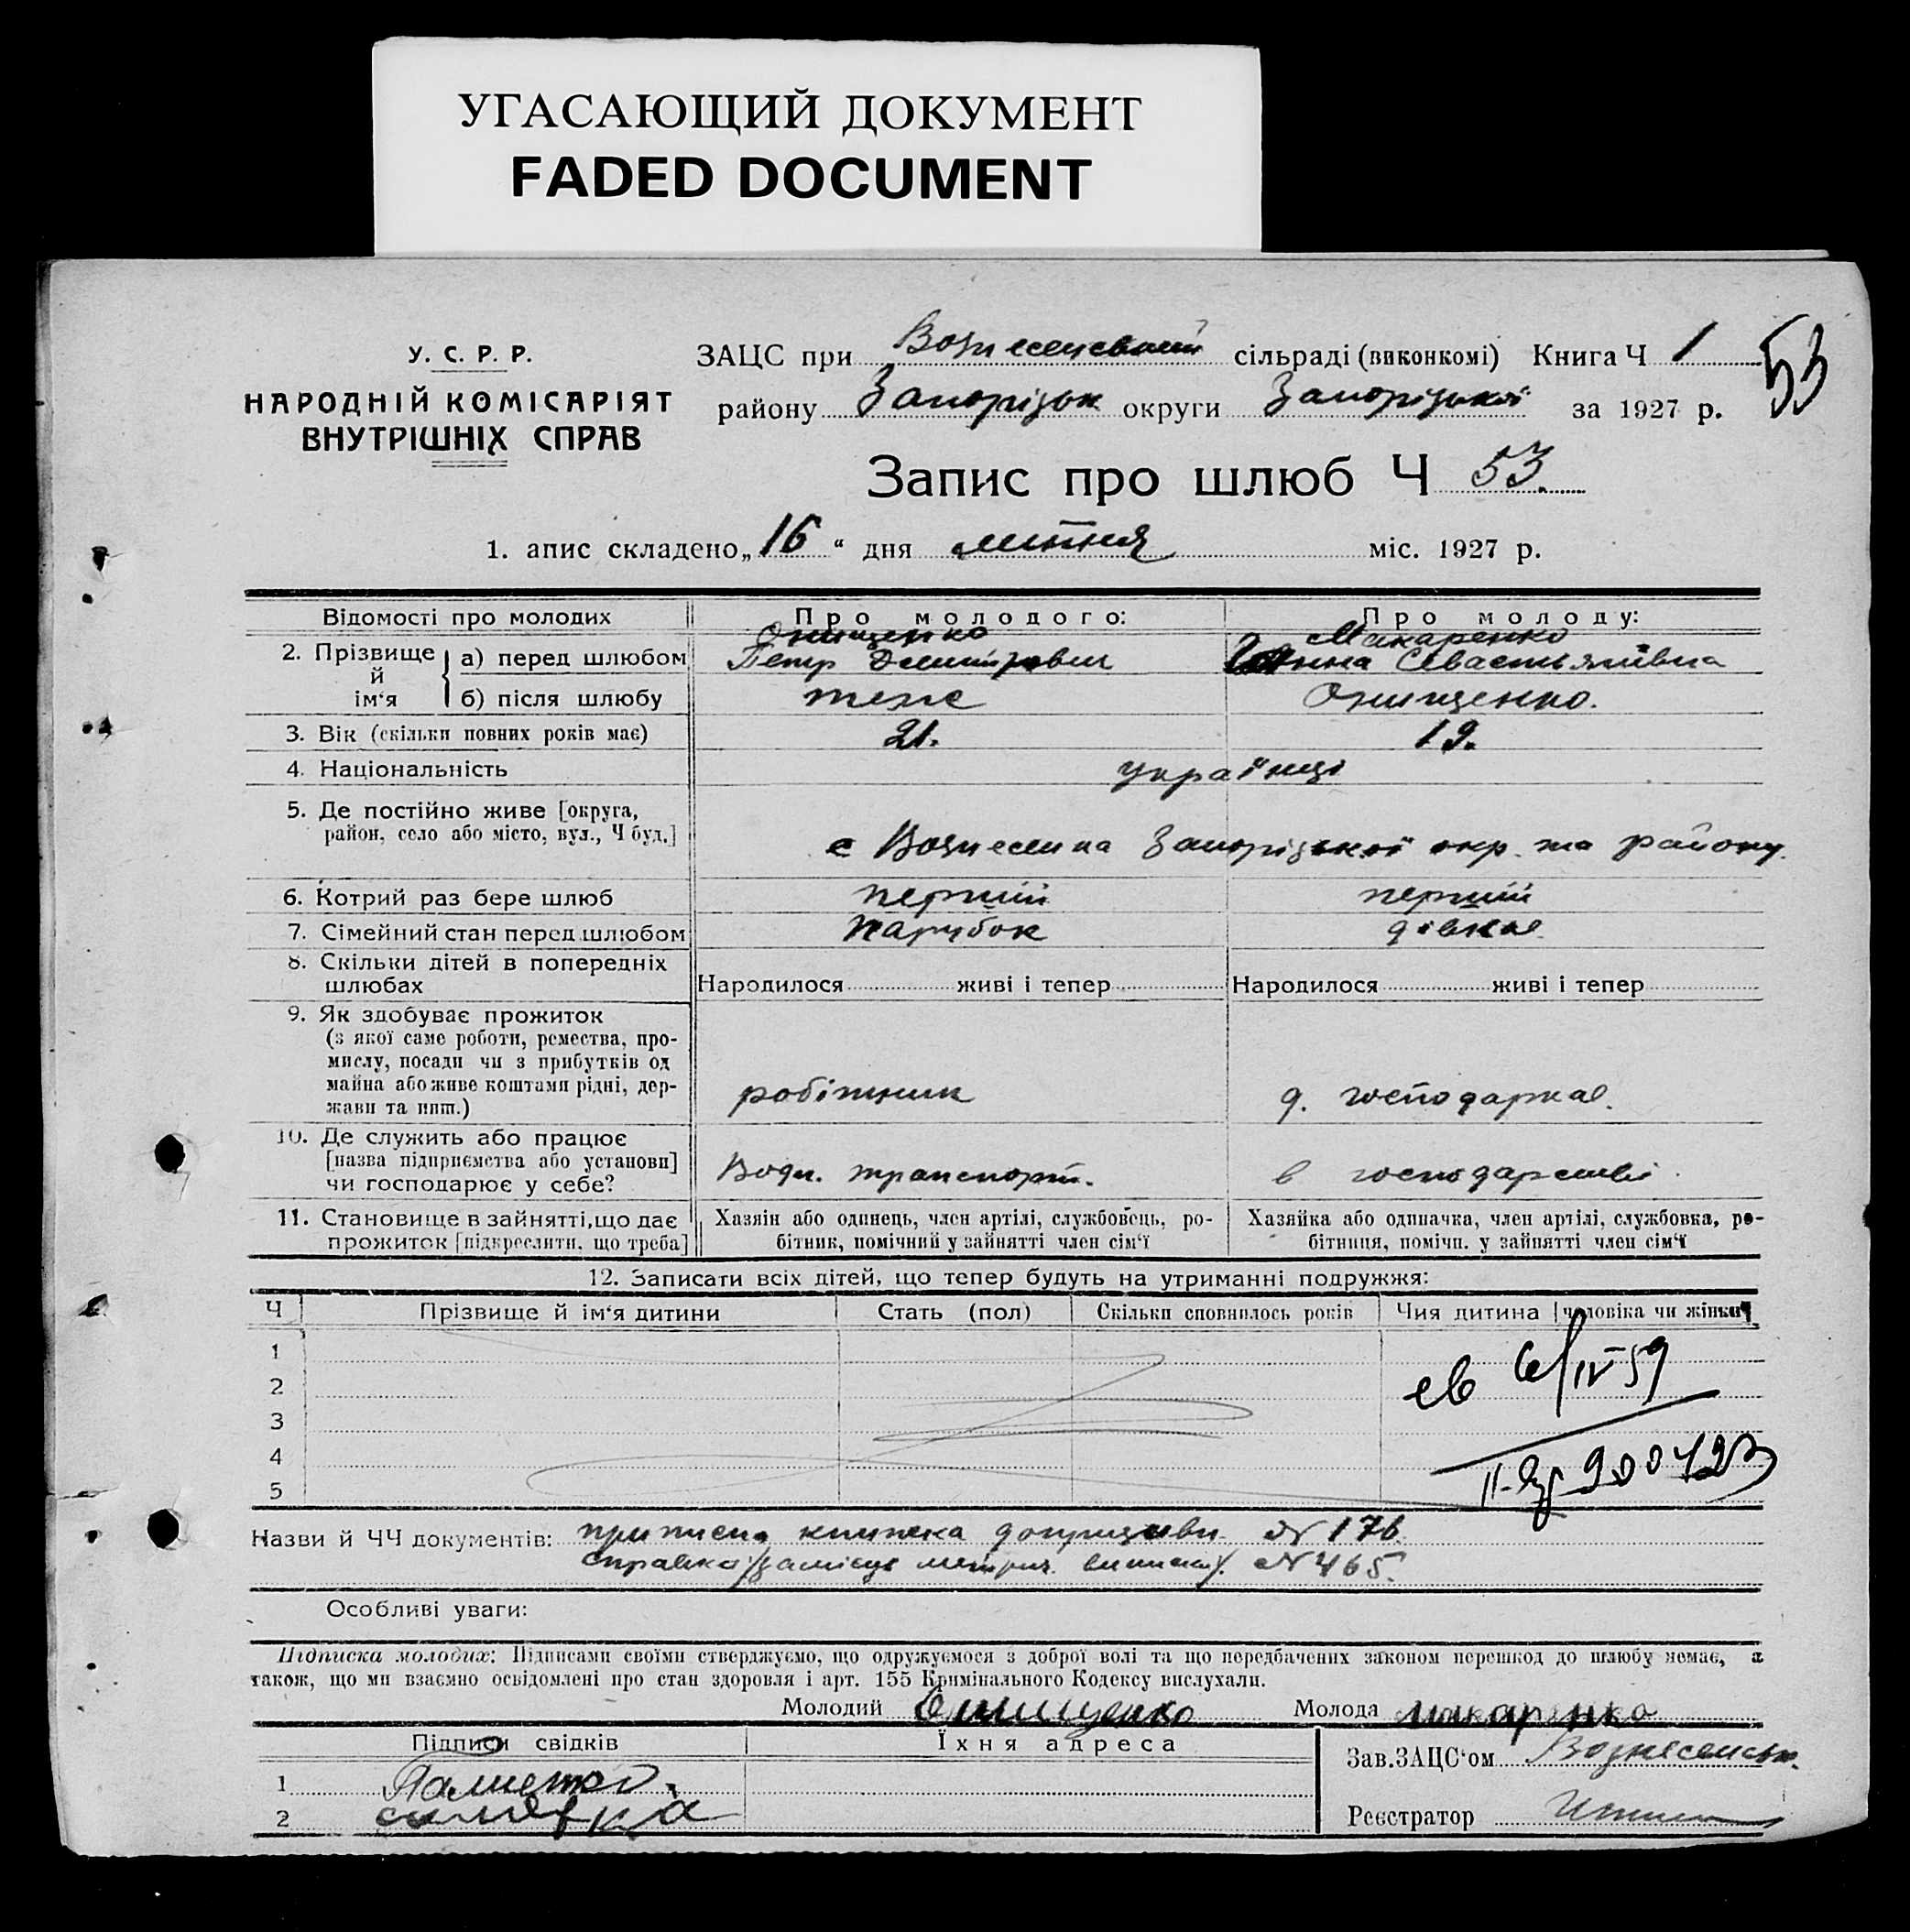 УГАСАЮЩИЙ ДОКУМЕНТ
FADED DOCUMENT
У. С. Р. Р.
НАРОДНІЙ КОМІСАРІЯТ
ВНУТРІШНІХ СПРАВ
ЗАЦС при Вознесенській сільраді (виконкомі) Книга Ч 1
53
району Запорізьк округи Запорізької за 1927 р.
Запис про шлюб Ч 53.
1. апис складено „16“ дня липня міс. 1927 р.
Відомості про молодих Про молодого: Про молоду:
2. Прізвище й ім‘я
а) перед шлюбом Онищенко Петр Дмитрович Макаренко Анна Севастьянівна
б) після шлюбу теж Онищенко.
3. Вік (скільки повних років має) 21. 19.
4. Національність українці
5. Де постійно живе [округа,
район, село або місто, вул., Ч буд.] с Вознесенка Запорізької окр. та району.
6. Котрий раз бере шлюб перший перший
7. Сімейний стан перед шлюбом Парубок дівка
8. Скільки дітей в попередніх
шлюбах Народилося живі і тепер Народилося живі і тепер
9. Як здобуває прожиток
(з якої саме роботи, ремества, про-
мислу, посади чи з прибутків од
майна або живе коштами рідні, дер-
жави та инш.) робітник д. господарка.
10. Де служить або працює
[назва підприємства або установи]
чи господарює у себе? Водн. транспорт. в господарстві
11. Становище в зайнятті, що дає
прожиток [підкреслити, що треба]
Хазяїн або одинець, член артілі, службовець, ро-
бітник, помічний у зайнятті член сім‘ї
Хазяйка або одиначка, член артілі, службовка, ро-
бітниця, помічн. у зайнятті член сім‘ї
12. Записати всіх дітей, що тепер будуть на утриманні подружжя:
Ч Прізвище й ім‘я дитини Стать (пол) Скільки сповнилось років Чия дитина [чоловіка чи жінки]
1
2
3
4
5
св 6/IV 59
Назви й ЧЧ документів: приписна книжка допризовн. № 176.
справка /замісць метрич. виписки/. № 465.
Особливі уваги:
Підписка молодих: Підписами своїми стверджуємо, що одружуємося з доброї волі та що передбачених законом перешкод до шлюбу немає, а
також, що ми взаємно освідомлені про стан здоровля і арт. 155 Кримінального Кодексу вислухали.
Молодий Онищенко Молода Макаренко
Підписи свідків Їхня адреса
Зав. ЗАЦС‘ом Вознесенськ.
1
2
Реєстратор